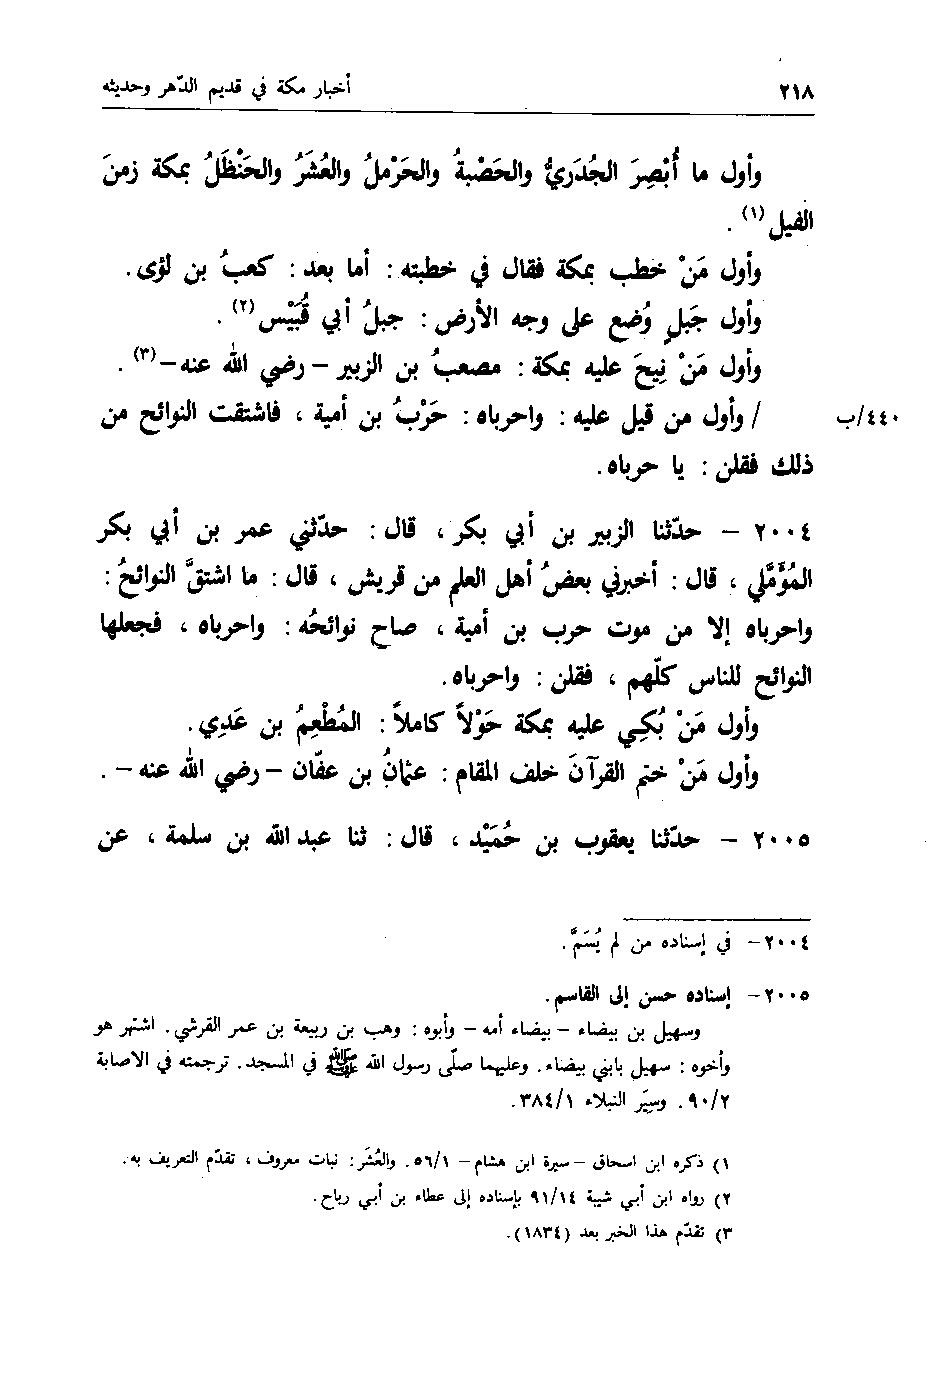 ٢١٨ أخبار مكة في قديم الدّهر وحديثه
وأول ما أُبْصِرَ الجُدَريُّ والحَصْبةُ والحَرْملُ والعُشَرُ والحَنْظَلُ بمكة زمنَ
الفيل(١) .
وأول مَنْ خطب بمكة فقال في خطبته : أما بعد : كعبُ بن لؤى.
وأول جَبلٍ وُضع على وجه الأرض : جبلُ أبي قُبَيْس(٢) .
وأول مَنْ نِيحَ عليه بمكة : مصعبُ بن الزبير – رضي الله عنه–(٣) .
٤٤٠/ب / وأول من قيل عليه : واحرباه : حَرْبُ بن أمية ، فاشتقت النوائح من
ذلك فقلن : يا حرباه.
٢٠٠٤ – حدّثنا الزبير بن أبي بكر ، قال : حدّثني عمر بن أبي بكر
المُؤَمَّلي ، قال : أخبرني بعضُ أهل العلم من قريش ، قال : ما اشتقَّ النوائحُ :
واحرباه إلا من موت حرب بن أمية ، صاح نوائحُه : واحرباه ، فجعلها
النوائح للناس كلّهم ، فقلن : واحرباه.
وأول مَنْ بُكي عليه بمكة حَوْلاً كاملاً : المُطْعِمُ بن عَدِي.
وأول مَنْ ختم القرآنَ خلف المقام : عثمانُ بن عفّان – رضي الله عنه – .
٢٠٠٥ – حدّثنا يعقوب بن حُمَيْد ، قال : ثنا عبد الله بن سلمة ، عن
٢٠٠٤– في إسناده من لم يُسَمَّ.
٢٠٠٥– إسناده حسن إلى القاسم.
وسهيل بن بيضاء – بيضاء أمه – وأبوه : وهب بن ربيعة بن عمر القرشي. اشتهر هو
وأخوه : سهيل بابني بيضاء. وعليهما صلّى رسول الله ﷺ في المسجد. ترجمته في الاصابة
٩٠/٢. وسِيَر النبلاء ٣٨٤/١.
١) ذكره ابن اسحاق –سيرة ابن هشام– ٥٦/١. والعُشَر: نبات معروف ، تقدّم التعريف به.
٢) رواه ابن أبي شيبة ٩١/١٤ بإسناده إلى عطاء بن أبي رباح.
٣) تقدّم هذا الخبر بعد (١٨٣٤).